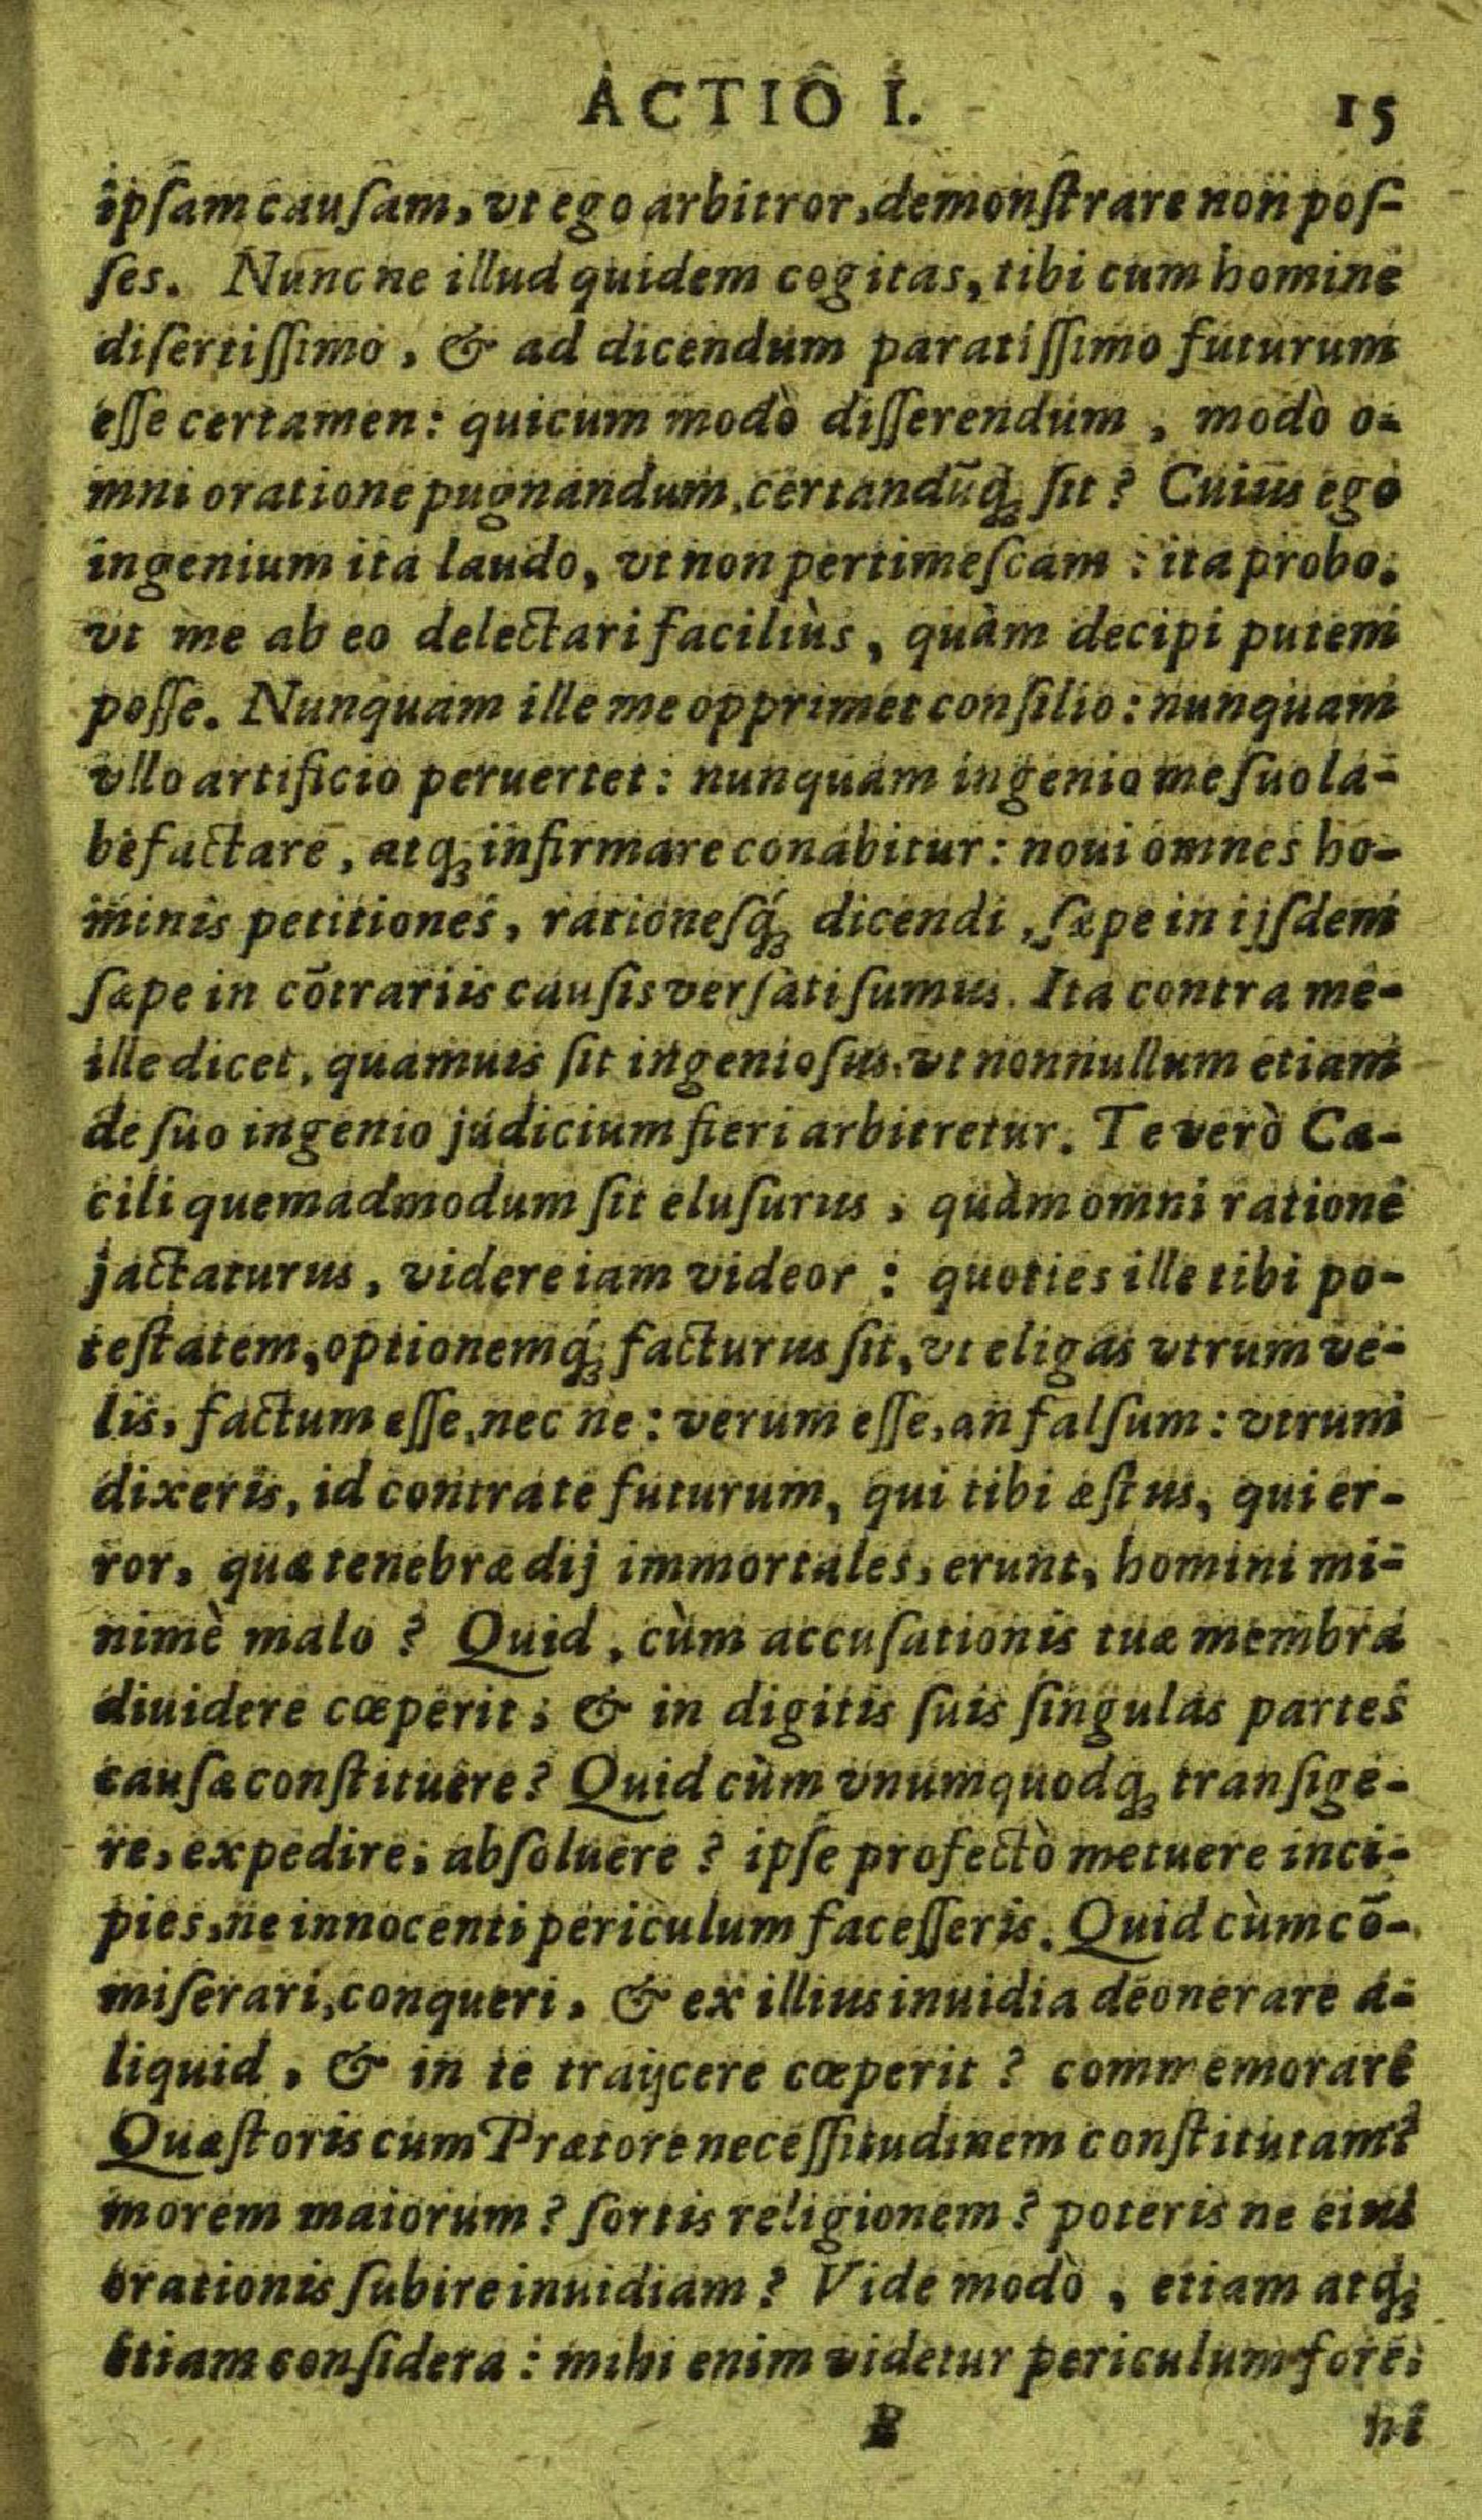 ACTIO I. 15
ipſam cauſam, vt ego arbitror, demonſtrare non poſ-
ſes. Nunc ne illud quidem cogitas, tibi cum homine
diſertiſſimo, & ad dicendum paratiſſimo futurum
eſſe certamen: quicum modò diſſerendum, modò o-
mni oratione pugnandum, certandūq́; ſit? Cuius ego
ingenium ita laudo, vt non pertimeſcam: ita probo,
vt me ab eo delectari faciliùs, quàm decipi putem
poſſe. Nunquam ille me opprimet conſilio: nunquam
vllo artificio peruertet: nunquam ingenio me ſuo la-
befactare, atq; infirmare conabitur: noui omnes ho-
minis petitiones, rationeſq́; dicendi, ſæpe in ijſdem
ſæpe in cōtrariis cauſis verſati ſumus. Ita contra me-
ille dicet, quamuis ſit ingenioſus, vt nonnullum etiam
de ſuo ingenio judicium fieri arbitretur. Te verò Cæ-
cili quemadmodum ſit eluſurus, quàm omni ratione
jactaturus, videre iam videor: quoties ille tibi po-
teſtatem, optionemq́; facturus ſit, vt eligas vtrum ve-
lis, factum eſſe, nec ne: verum eſſe, an falſum: vtrum
dixeris, id contra te futurum, qui tibi æſtus, qui er-
ror, quæ tenebræ dij immortales, erunt, homini mi-
nimè malo? Quid, cùm accuſationis tuæ membra
diuidere cœperit; & in digitis ſuis ſingulas partes
cauſæ conſtituere? Quid cùm vnumquodq; tranſige-
re, expedire; abſoluere? ipſe profectò metuere inci-
pies, ne innocenti periculum faceſſeris. Quid cùm cō-
miſerari, conqueri, & ex illius inuidia deonerare a-
liquid, & in te traijcere cœperit? commemorare
Quæſtoris cum Prætore neceſſitudinem conſtitutam?
morem maiorum? ſortis religionem? poteris ne eius
orationis ſubire inuidiam? Vide modò, etiam atq́;
etiam conſidera: mihi enim videtur periculum fore;
B ne